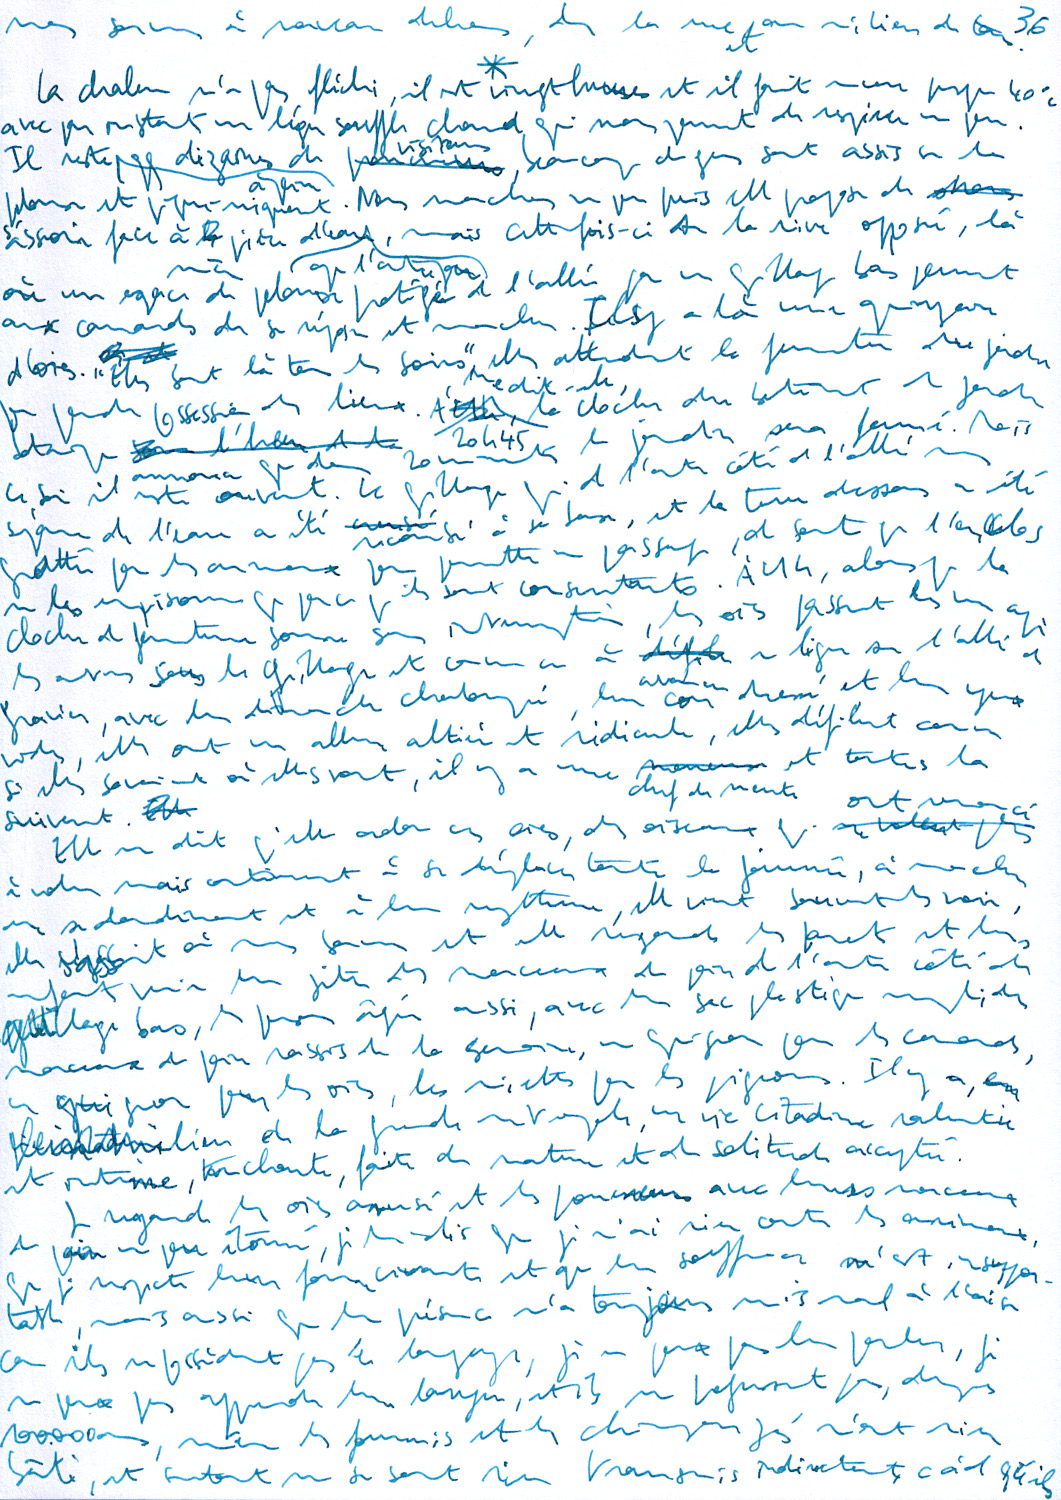 36
à, dans la rue et au milieu de
*
La chaleur n'a pas fléchi, il est vingt heures et il fait encore presque 40°C
avec par instant un léger souffle chaud qui nous permet de respirer un peu.
Il reste qq dizaines de visiteurs, beaucoup de gens sont assis sur les
pelouses et pique-niquent. Nous marchons un peu puis elle propose de
s'asseoir face à la pièce d'eau, mais cette fois-ci sur la rive opposée, là
où un espace de pelouse protégé de l'allée par un grillage bas permet
aux canards de se reposer et marcher. Il y a là une quinzaine
d'oies. "Elles sont là tous les soirs", me dit-elle, elles attendent la fermeture du jardin
pour prendre possession des lieux. À 20h45, la cloche du bâtiment du jardin
botanique annonce que dans 20 minutes le jardin sera fermé. Mais
ce soir il reste ouvert. Le grillage qui de l'autre côté de l'allée nous
sépare de l'eau a été à sa base, et la terre dessous a été
grattée par les animaux pour permettre un passage, de sorte que l'enclos
ne les emprisonne que parce qu'ils sont consentants. À 21h, alors que la
cloche de fermeture sonne sans interruption, les oies passent les unes après
les autres sous le grillage et commencent à avancer en ligne sur l'allée de
gravier, avec leur démarche chaloupée, leur cou dressé et leurs yeux
vides, elles ont une allure altière et ridicule, elles défilent comme
si elles savaient où elles vont, il y a une chef de meute et toutes la
suivent.
Elle me dit qu'elle adore ces oies, des oiseaux qui ont renoncé
à voler mais continuent à se déplacer toute la journée, à marcher
en se dandinant et à leur rythme, elle vient souvent les voir,
elle s'assoit où nous sommes et elle regarde les parents et leurs
enfants venir leur jeter des morceaux de pain de l'autre côté du
grillage bas, les personnes âgées aussi, avec leur sac plastique rempli de
morceaux de pain rassis de la semaine, un quignon pour les canards,
un quignon pour les oies, les miettes pour les pigeons. Il y a, en
plein milieu de la grande métropole, une vie citadine ralentie
et intime, touchante, faite de nature et de solitude acceptée.
Je regarde les oies amusé et les avec leurs morceaux
de pain un peu étonné, je lui dis que je n'ai rien contre les animaux,
que je respecte leur forme vivante et que leur souffrance m'est insuppor-
table, mais aussi que leur présence m'a toujours mis mal à l'aise
car ils ne possèdent pas le langage, je ne peux pas leur parler, je
ne peux pas apprendre leur langue, et ils ne progressent pas, depuis
100.000 ans, même les fourmis et les chimpanzés n'ont rien
bâti, et surtout ne se sont rien transmis indirectement, càd qu'ils